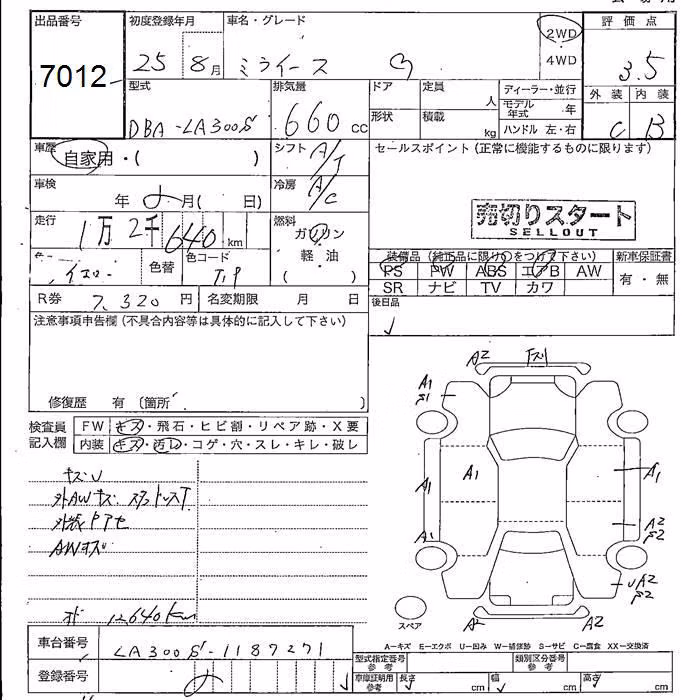 出品番号
7012
初度登録年月
25 8月
車名・グレード
ミライース G
2WD
4WD
評価点
3.5
外装 内装
C B
型式
DBA-LA300S
排気量
660 cc
ドア 定員 人
形状 積載 kg
ディーラー・並行
モデル年式 年
ハンドル 左・右
車歴
自家用・( )
シフト A/T
セールスポイント(正常に機能するものに限ります)
売切りスタート
SELLOUT
車検
年 月( 日)
冷房 A/C
走行
1万2千640 km
燃料
ガソリン
軽・油
( )
イエロー
色替
色コード
装備品(純正品に限り○をつけて下さい)
PS PW ABS エアB AW
SR ナビ TV カワ
新車保証書
有・無
R券 7,320 円
名変期限 月 日
後日品
注意事項申告欄(不具合内容等は具体的に記入して下さい)
修復歴 有 (箇所 )
検査員記入欄
FW キズ・飛石・ヒビ割・リペア跡・X要
内装 キズ・汚レ・コゲ・穴・スレ・キレ・破レ
キズU
AWキズ
12640km
A2
A1
A1
A1
A1
A1
A2
UA2
A2
A2
スペア
車台番号 LA300S-1187271
登録番号
A-キズ E-エクボ U-凹み W-補修跡 S-サビ C-腐食 XX-交換済
型式指定番号 参考
類別区分番号 参考
車庫証明用 参考
長さ cm
幅 cm
高さ cm